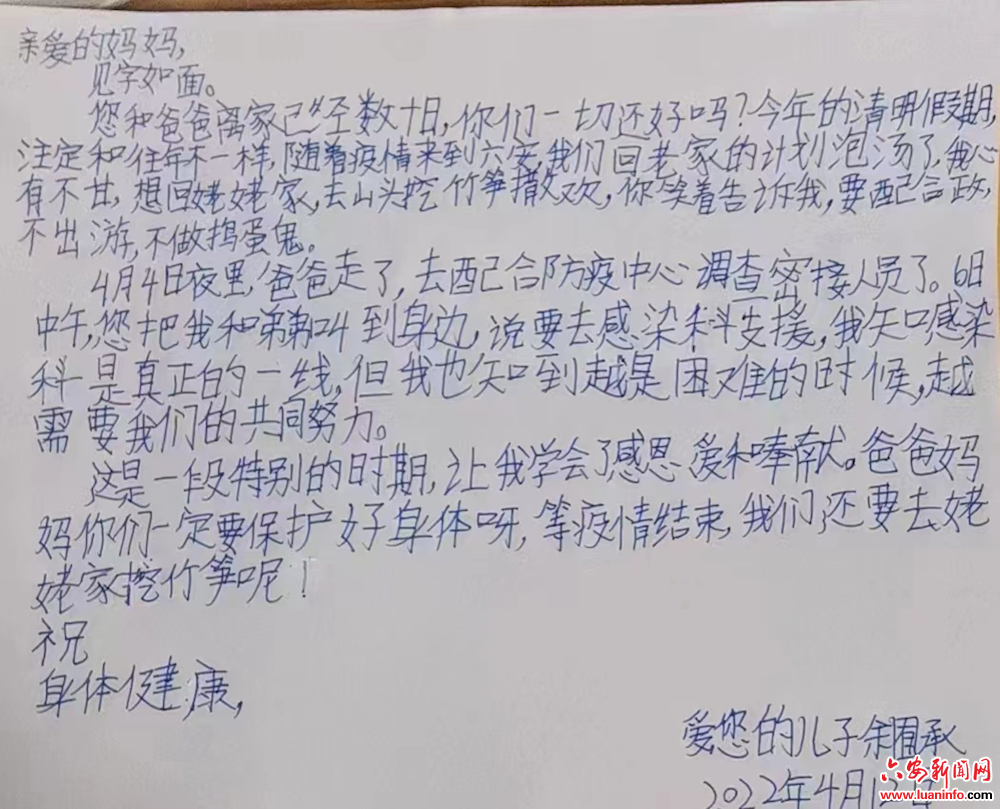 亲爱的妈妈,
见字如面。
您和爸爸离家已经数十日,你们一切还好吗?今年的清明假期,
注定和往年不一样,随着疫情来到六安,我们回老家的计划泡汤了,我心
有不甘,想回姥姥家,去山头挖竹笋撒欢,你笑着告诉我,要配合政,
不出游,不做捣蛋鬼。
4月4日夜里,爸爸走了,去配合防疫中心调查密接人员了。6日
中午,您把我和弟弟叫到身边,说要去感染科支援,我知感染
科是真正的一线,但我也知到越是困难的时候,越
需要我们的共同努力。
这是一段特别的时期,让我学会了感恩、爱和奉献。爸爸妈
妈你们一定要保护好身体呀,等疫情结束,我们还要去姥
姥家挖竹笋呢!
祝
身体健康,
爱您的儿子余承
2022年4月12日
六安新闻网
www.luaninfo.com